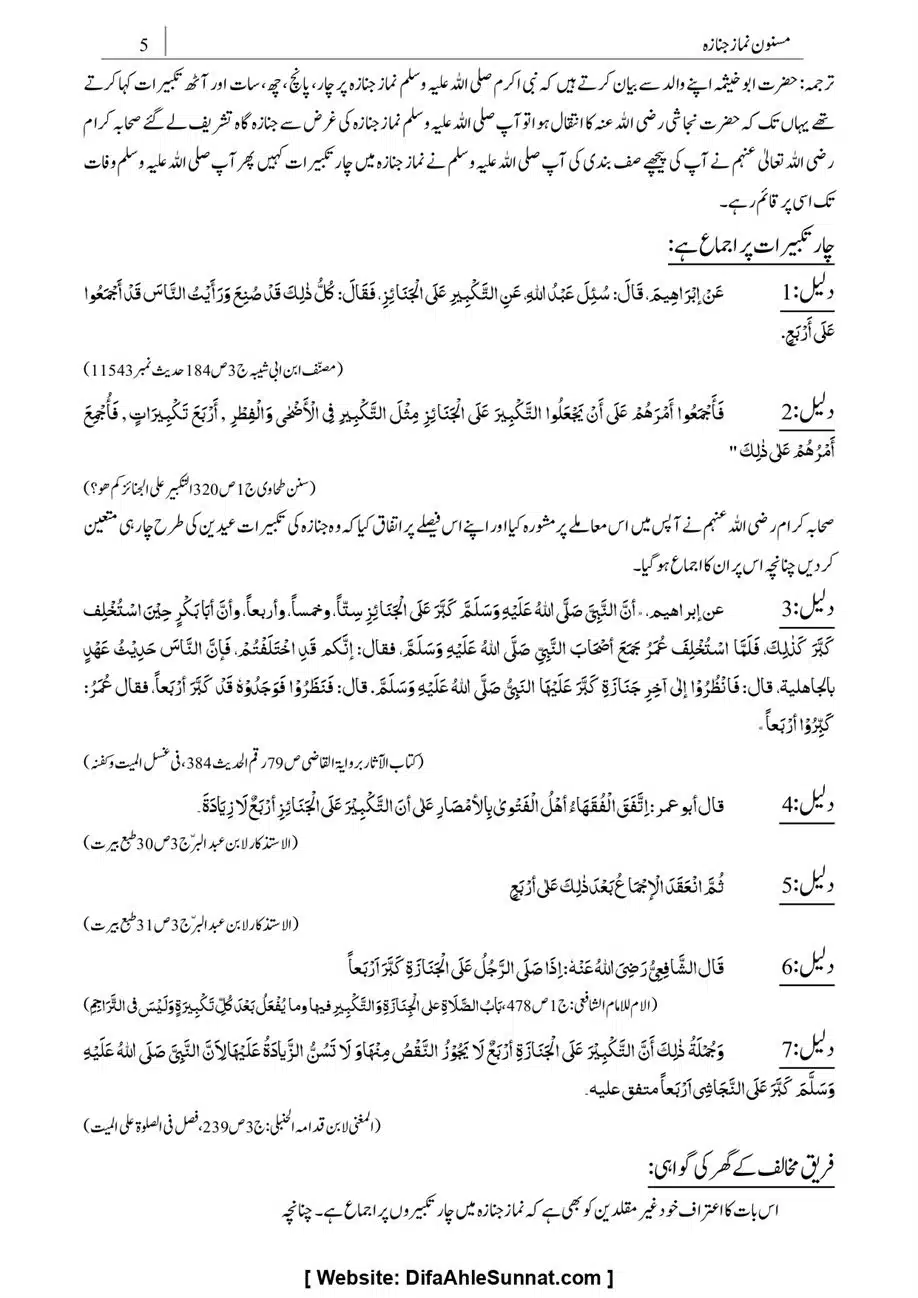 مسنون نماز جنازہ 5
ترجمہ: حضرت ابو خیثمہ اپنے والد سے بیان کرتے ہیں کہ نبی اکرم صلی اللہ علیہ وسلم نماز جنازہ پر چار، پانچ، چھ، سات اور آٹھ تکبیرات کہا کرتے
تھے یہاں تک کہ حضرت نجاشی رضی اللہ عنہ کا انتقال ہوا تو آپ صلی اللہ علیہ وسلم نماز جنازہ کی غرض سے جنازہ گاہ تشریف لے گئے صحابہ کرام
رضی اللہ تعالیٰ عنہم نے آپ کی پیچھے صف بندی کی آپ صلی اللہ علیہ وسلم نے نماز جنازہ میں چار تکبیرات کہیں پھر آپ صلی اللہ علیہ وسلم وفات
تک اسی پر قائم رہے۔
چار تکبیرات پر اجماع ہے:
دلیل:1 عَنْ إِبْرَاهِيمَ، قَالَ: سُئِلَ عَبْدُ اللهِ، عَنِ التَّكْبِيرِ عَلَى الْجَنَائِزِ، فَقَالَ: كُلُّ ذٰلِكَ قَدْ صُنِعَ وَرَأَيْتُ النَّاسَ قَدْ أَجْمَعُوا
عَلَى أَرْبَعٍ.
(مصنّف ابن ابی شیبہ ج3ص184 حدیث نمبر 11543)
دلیل:2 فَأَجْمَعُوا أَمْرَهُمْ عَلَى أَنْ يَجْعَلُوا التَّكْبِيرَ عَلَى الْجَنَائِزِ مِثْلَ التَّكْبِيرِ فِي الْأَضْحٰى وَالْفِطْرِ , أَرْبَعَ تَكْبِيرَاتٍ , فَأُجْمِعَ
أَمْرُهُمْ عَلٰى ذٰلِكَ "
(سنن طحاوی ج1ص320 التکبیر علی الجنائز کم ھو؟)
صحابہ کرام رضی اللہ عنہم نے آپس میں اس معاملے پر مشورہ کیا اور اپنے اس فیصلے پر اتفاق کیا کہ وہ جنازہ کی تکبیرات عیدین کی طرح چار ہی متعین
کر دیں چنانچہ اس پر ان کا اجماع ہو گیا۔
دلیل:3 عن إبراهيم، أنَّ النَّبِيَّ صَلَّى اللهُ عَلَيْهِ وَسَلَّمَ كَبَّرَ عَلَى الْجَنَائِزِ سِتًّا، وخمساً، وأربعاً، وأنَّ أبَا بَكْرٍ حِيْنَ اسْتُخْلِفَ
كَبَّرَ كَذٰلِكَ، فَلَمَّا اسْتُخْلِفَ عُمَرُ جَمَعَ أصْحَابَ النَّبِيِّ صَلَّى اللهُ عَلَيْهِ وَسَلَّمَ، فقال: إنَّكم قَدِ اخْتَلَفْتُمْ، فَإنَّ النَّاسَ حَدِيْثُ عَهْدٍ
بالجاهلية، قال: فَانْظُرُوْا إلى آخِرِ جَنَازَةٍ كَبَّرَ عَلَيْهَا النَّبِيُّ صَلَّى اللهُ عَلَيْهِ وَسَلَّمَ. قال: فَنَظَرُوْا فَوَجَدُوْهُ قَدْ كَبَّرَ أرْبَعاً، فقال عُمَرُ:
كَبِّرُوْا أرْبَعاً۔
(کتاب الآثار بروایۃ القاضی ص79 رقم الحدیث 384، فی غسل المیت وکفنہ)
دلیل:4 قال أبو عمر: اِتَّفَقَ الْفُقَهَاءُ أهْلُ الْفَتْوىٰ بِالأمْصَارِ عَلىٰ أنَ التَّكْبِيْرَ عَلَى الْجَنَائِزِ أرْبَعٌ لَا زِيَادَةَ۔
(الاستذکار لابن عبد البرّ ج3ص30 طبع بیرت)
دلیل:5 ثُمَّ انْعَقَدَ الْإجْمَاعُ بَعْدَ ذٰلِكَ عَلىٰ أرْبَعٍ
(الاستذکار لابن عبد البرّ ج3ص31 طبع بیرت)
دلیل:6 قَالَ الشَّافِعِيُّ رَضِيَ اللهُ عَنْهُ: إذَا صَلَّى الرَّجُلُ عَلَى الْجَنَازَةِ كَبَّرَ اَرْبَعاً
(الام للامام الشافعی: ج1ص478، بَابُ الصَّلَاةِ علی الْجِنَازَةِ وَالتَّكْبِيرِ فيها وما يُفْعَلُ بَعْدَ كُلِّ تَكْبِيرَةٍ وَلَيْسَ فی التَّرَاجِمِ)
دلیل:7 وَجُمْلَةُ ذٰلِكَ أَنَّ التَّكْبِيْرَ عَلَى الْجَنَازَةِ أرْبَعٌ لَا يَجُوْزُ النَّقْصُ مِنْهَا وَ لَا تَسُنُّ الزِّيادَةُ عَلَيْهَا لِاَنَّ النَّبِيَّ صَلَى اللهُ عَلَيْهِ
وَسَلَّمَ كَبَّرَ عَلَى النَّجَاشِى اَرْبَعاً متفق عليه۔
(المغنی لابن قدامہ الحنبلی: ج3ص239، فصل فی الصلوۃ علی المیت)
فریق مخالف کے گھر کی گواہی:
اس بات کا اعتراف خود غیر مقلدین کو بھی ہے کہ نماز جنازہ میں چار تکبیروں پر اجماع ہے۔ چنانچہ
[ Website: DifaAhleSunnat.com ]